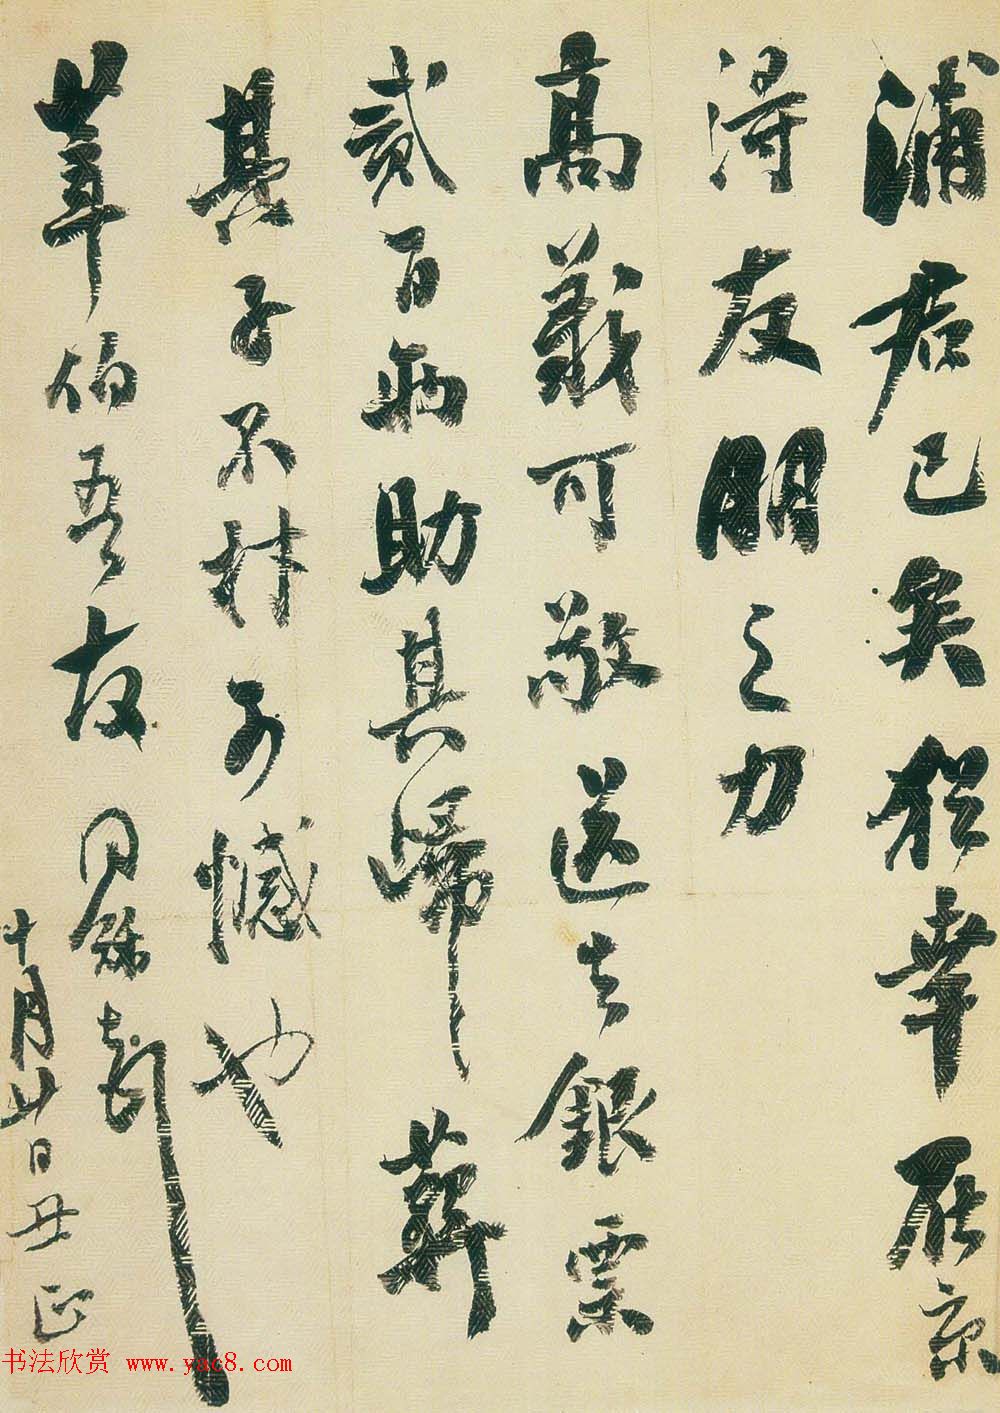 浦君已矣猶幸在京
得友朋之力
高義可敬送去銀票
貳百兩助其歸葬
其子不材可憾也
莘伯吾友 同龢頓
十月廿日丑正
书法欣赏 www.yac8.com